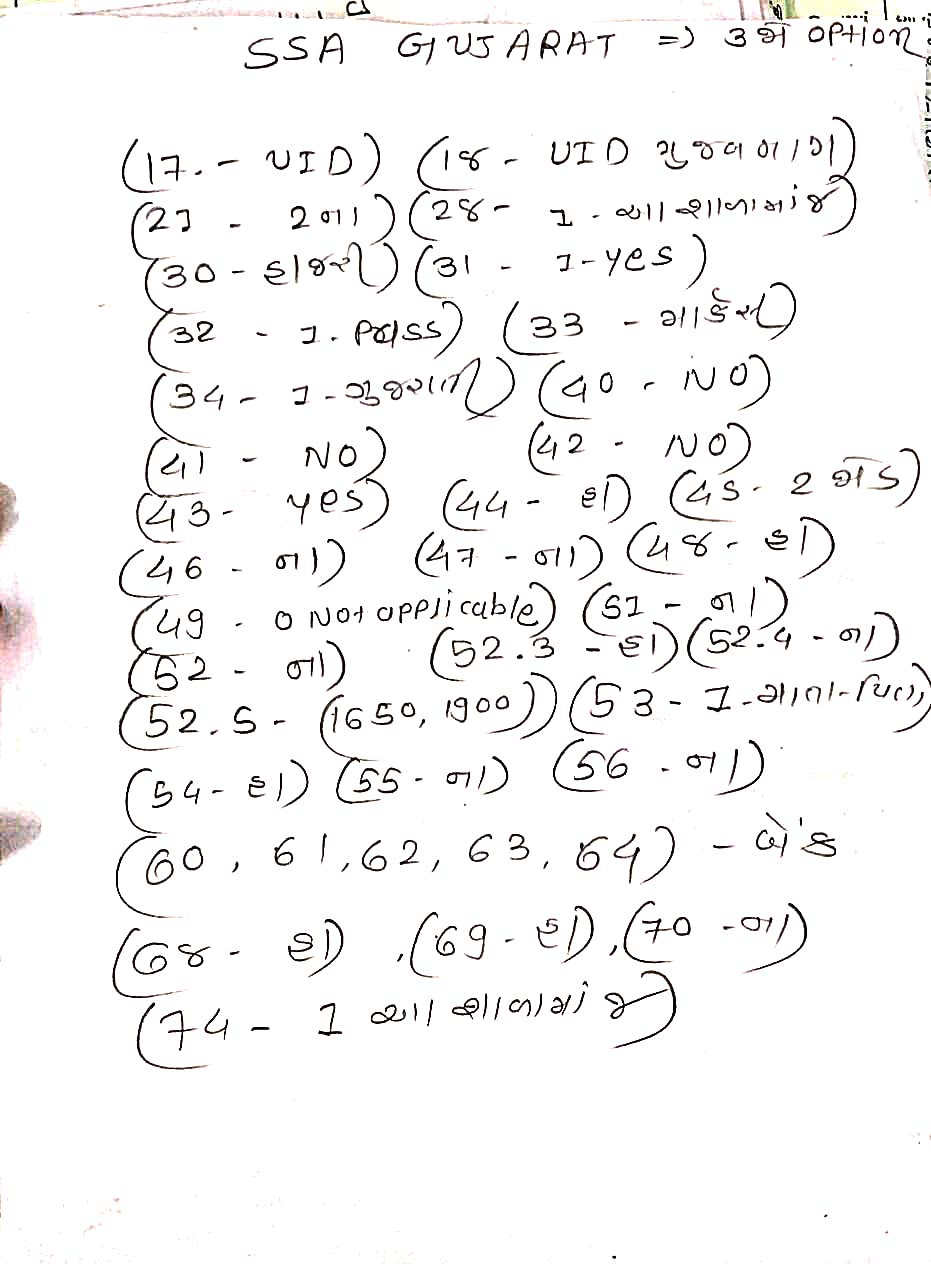 SSA GUJARAT => 3 જો OPtION
(17. - UID) (1૪ - UID મુજબ નામ)
(27 - 2 ના) (2૪ - 1 - આ શાળામાં જ)
(30 - હાજરી) (31 - 1-yes)
(32 - 1. પાSS) (33 - માર્કેસ)
(34 - 1 - ગુજરાતી) (40 - NO)
(41 - NO) (42 - NO)
(43 - yes) (44 - હા) (45 - 2
(46 - ના) (47 - ના) (4૪ - હા)
(49 - 0 Not applicable) (51 - ના)
(52 - ના) (52.3 - હા) (52.4 - ના)
(52.5 - (1650, 1900)) (53 - 1 - માતા-પિતા)
(54 - હા) (55 - ના) (56 - ના)
(60, 61, 62, 63, 64) - બેંક
(6૪ - હા), (69 - હા), (70 - ના)
(74 - 1 આ શાળામાં જ)